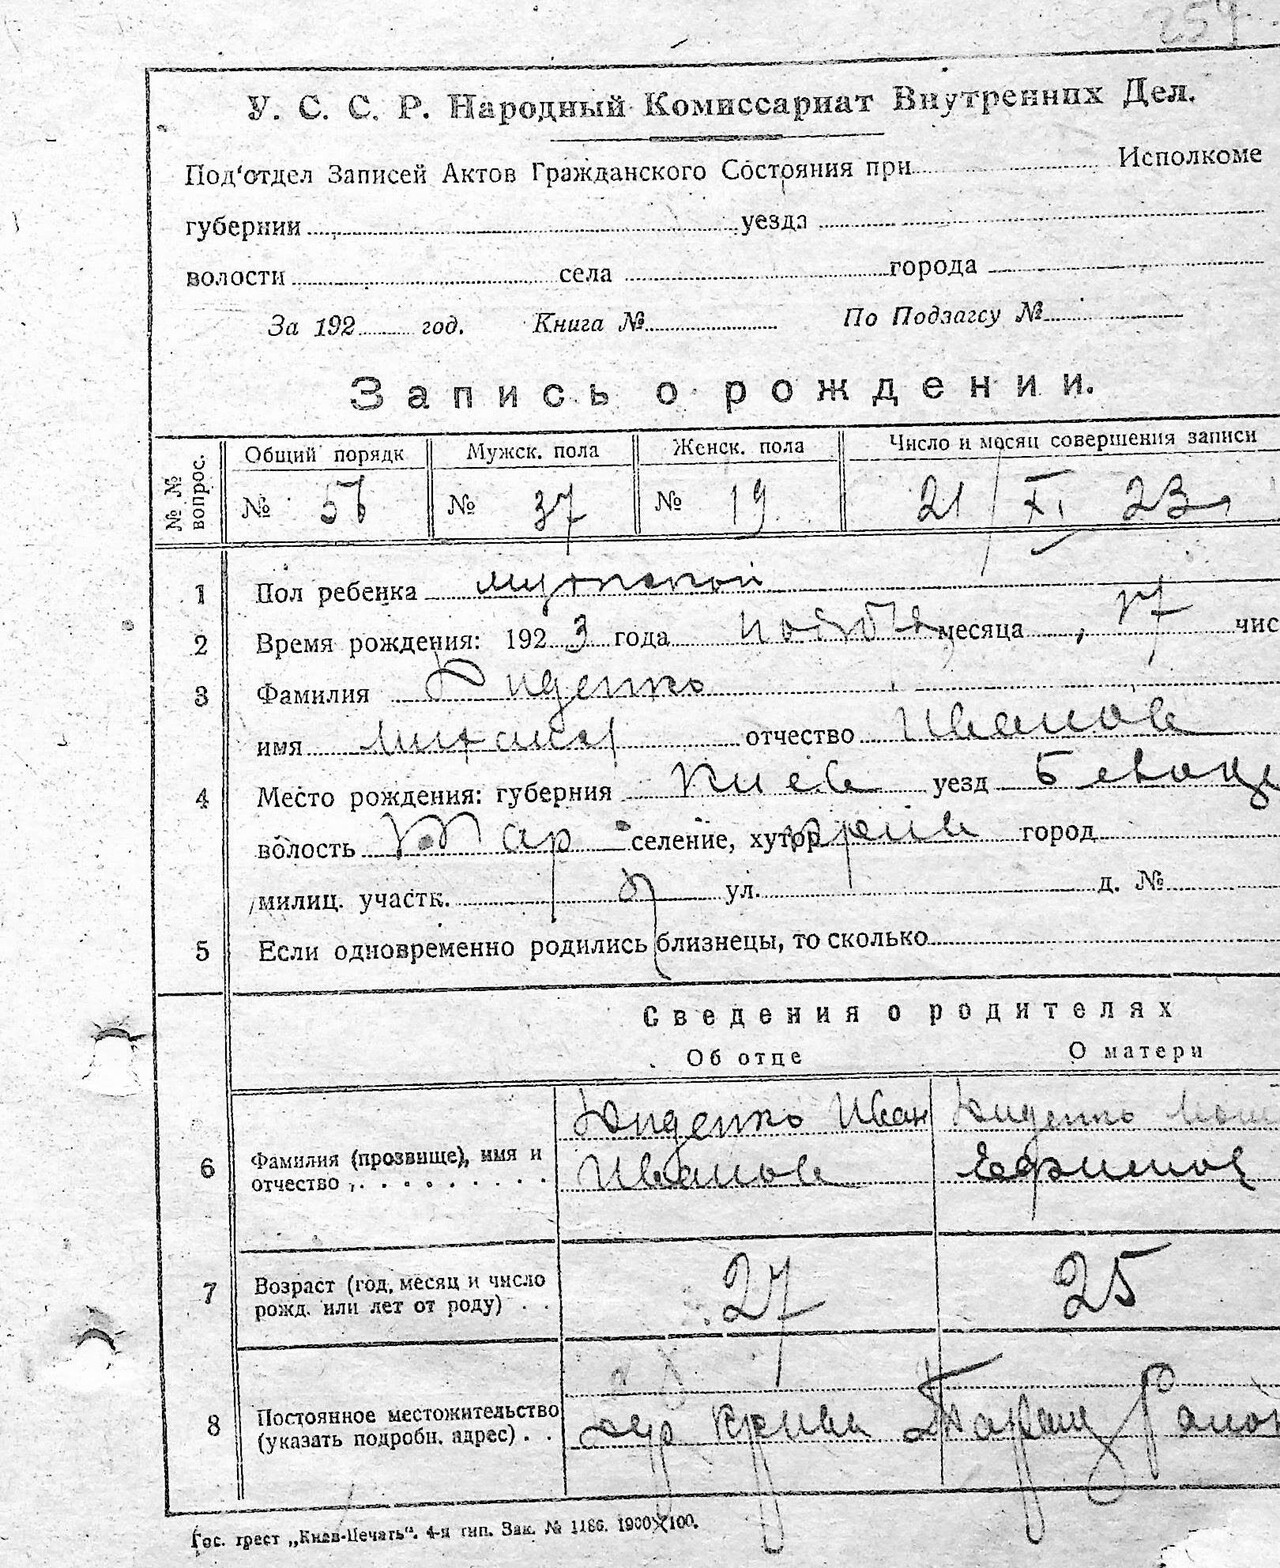 257
У. С. С. Р. Народный Комиссариат Внутренних Дел.
Под'отдел Записей Актов Гражданского Состояния при Исполкоме
губернии уезда
волости села города
За 192 год. Книга № По Подзагсу №
Запись о рождении.
№ № вопрос. Общий порядк Мужск. пола Женск. пола Число и месяц совершения записи
№ 56 № 37 № 19 21/XI 23
1 Пол ребенка мужской
2 Время рождения: 1923 года ноября месяца 17 чис
3 Фамилия Диденко
имя Михаил отчество Иванов
4 Место рождения: губерния Киев уезд
волость Тар селение, хутор город
милиц. участк. ул. д. №
5 Если одновременно родились близнецы, то сколько
Сведения о родителях
Об отце О матери
6 Фамилия (прозвище), имя и отчество
Диденко Иван Диденко
Иванов Ефимов
7 Возраст (год, месяц и число рожд. или лет от роду) 27 25
8 Постоянное местожительство (указать подробн. адрес) Тараш район
Гос. трест „Киев-Печать". 4-я тип. Зак. № 1186. 1900X100.